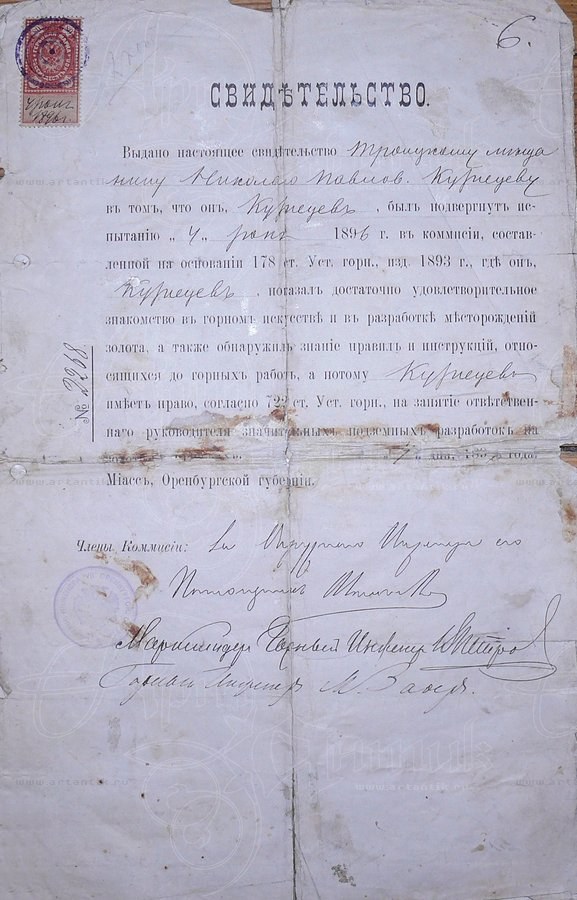 6.
4 юня
1896 г.
СВИДѢТЕЛЬСТВО.
Выдано настоящее свидѣтельство Троицкому мѣща
нину Николаю Павлов. Кузнецову
въ томъ, что онъ, Кузнецовъ, былъ подвергнутъ ис-
пытанію „ 4 „ юня 1896 г. въ коммисіи, состав-
ленной на основаніи 178 ст. Уст. горн., изд. 1893 г., гдѣ онъ,
Кузнецовъ, показалъ достаточно удовлетворительное
знакомство въ горномъ искусствѣ и въ разработкѣ мѣсторожденій
золота, а также обнаружилъ знаніе правилъ и инструкцій, отно-
сящихся до горныхъ работъ, а потому Кузнецовъ
имѣетъ право, согласно 722 ст. Уст. горн., на занятіе отвѣтствен-
наго руководителя значительныхъ подземныхъ разработокъ на
дня, года.
Міассъ, Оренбургской губерніи.
№ 2268
Члены Коммисіи: За Окружного Инженера его
Помощникъ
Маркшейдеръ Горный Инженер
Горный Инженеръ
www.artantik.ru